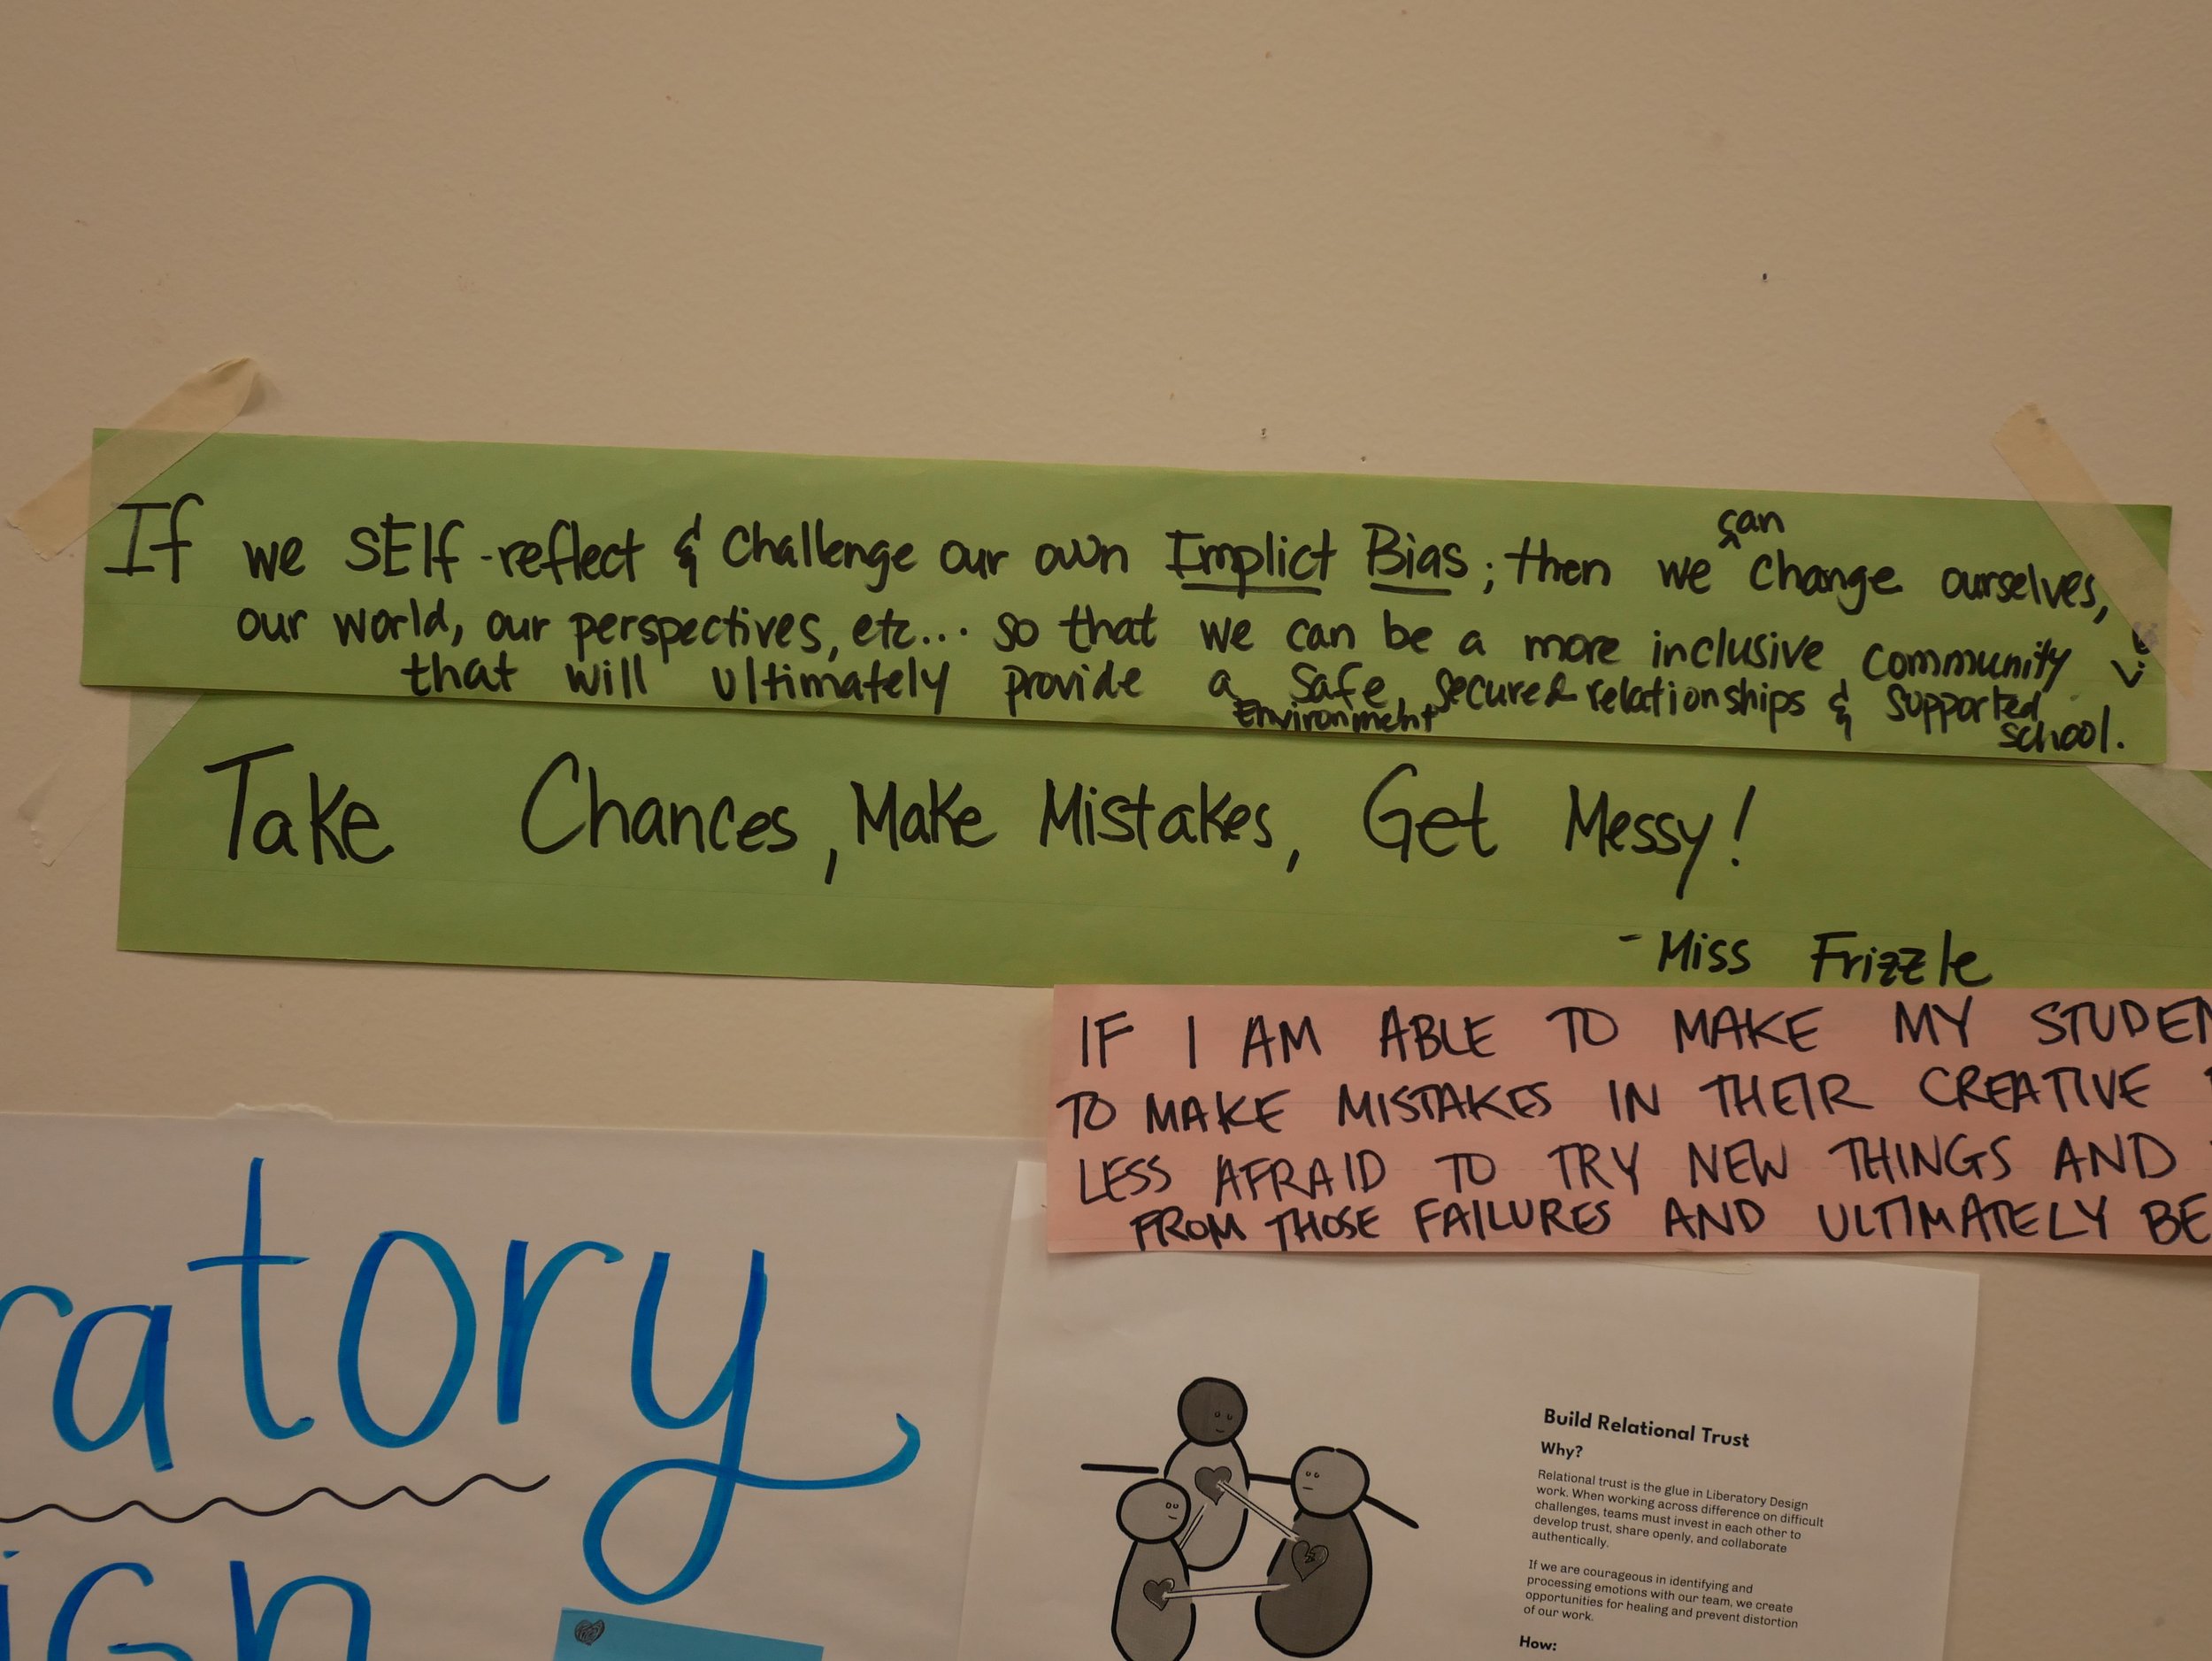 If we SElf-reflect & challenge our own Implict Bias; then we can change ourselves,
our world, our perspectives, etc... so that we can be a more inclusive community
that will ultimately provide a safe, secure & relationships & supported
Environment school.
Take Chances, Make Mistakes, Get Messy!
- Miss Frizzle
IF I AM ABLE TO MAKE MY STUDEN
TO MAKE MISTAKES IN THEIR CREATIVE
LESS AFRAID TO TRY NEW THINGS AND
FROM THOSE FAILURES AND ULTIMATELY BE
ratory
ign
Build Relational Trust
Why?
Relational trust is the glue in Liberatory Design
work. When working across difference on difficult
challenges, teams must invest in each other to
develop trust, share openly, and collaborate
authentically.
If we are courageous in identifying and
processing emotions with our team, we create
opportunities for healing and prevent distortion
of our work.
How: